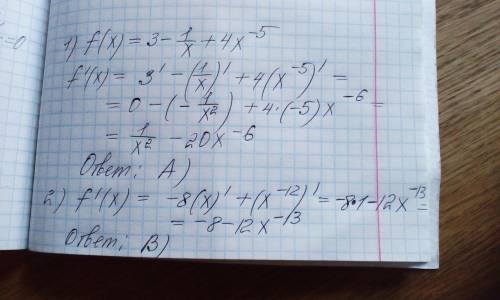 =0
1) f(x) = 3 - 1/x + 4x^-5
f'(x) = 3' - (1/x)' + 4(x^-5)' =
= 0 - (- 1/x^2) + 4·(-5)x^-6 =
= 1/x^2 - 20x^-6
Ответ: А)
2) f'(x) = -8(x)' + (x^-12)' = -8·1-12x^-13 =
= -8-12x^-13
Ответ: В)